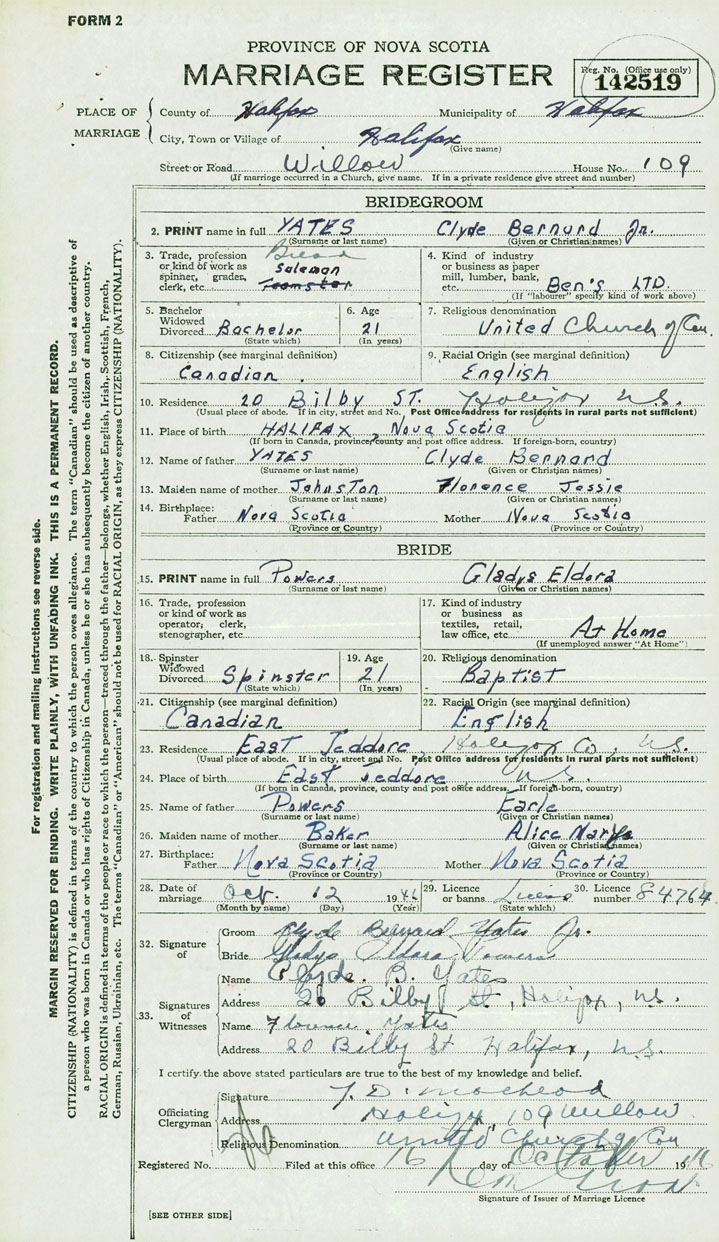 FORM 2
PROVINCE OF NOVA SCOTIA
MARRIAGE REGISTER
Reg. No. (Office use only)
142519
PLACE OF MARRIAGE
County of Halifax Municipality of Halifax
City, Town or Village of Halifax
(Give name)
Street or Road Willow House No. 109
(If marriage occurred in a Church, give name. If in a private residence give street and number)
BRIDEGROOM
2. PRINT name in full YATES Clyde Bernard Jr.
(Surname or last name) (Given or Christian names)
3. Trade, profession or kind of work as spinner, grader, clerk, etc. Bread Saleman Teamster
4. Kind of industry or business as paper mill, lumber, bank, etc. Ben's LTD.
(If "labourer" specify kind of work above)
5. Bachelor Widowed Divorced Bachelor
(State which)
6. Age 21
(In years)
7. Religious denomination
United Church of Can.
8. Citizenship (see marginal definition)
Canadian
9. Racial Origin (see marginal definition)
English
10. Residence 20 Bilby ST. Halifax N.S.
(Usual place of abode. If in city, street and No. Post Office address for residents in rural parts not sufficient)
11. Place of birth HALIFAX, Nova Scotia
(If born in Canada, province, county and post office address. If foreign-born, country)
12. Name of father YATES Clyde Bernard
(Surname or last name) (Given or Christian names)
13. Maiden name of mother Johnston Florence Jessie
(Surname or last name) (Given or Christian names)
14. Birthplace: Father Nova Scotia Mother Nova Scotia
(Province or Country) (Province or Country)
BRIDE
15. PRINT name in full Powers Gladys Eldora
(Surname or last name) (Given or Christian names)
16. Trade, profession or kind of work as operator, clerk, stenographer, etc.
17. Kind of industry or business as textiles, retail, law office, etc. At Home
(If unemployed answer "At Home")
18. Spinster Widowed Divorced Spinster
(State which)
19. Age 21
(In years)
20. Religious denomination
Baptist
21. Citizenship (see marginal definition)
Canadian
22. Racial Origin (see marginal definition)
English
23. Residence East Jeddore, Halifax Co, N.S.
(Usual place of abode. If in city, street and No. Post Office address for residents in rural parts not sufficient)
24. Place of birth East Jeddore N.S.
(If born in Canada, province, county and post office address. If foreign-born, country)
25. Name of father Powers Earle
(Surname or last name) (Given or Christian names)
26. Maiden name of mother Baker Alice
(Surname or last name) (Given or Christian names)
27. Birthplace: Father Nova Scotia Mother Nova Scotia
(Province or Country) (Province or Country)
28. Date of marriage Oct. 12 1946
(Month by name) (Day) (Year)
29. Licence or banns
(State which)
30. Licence number 84764
32. Signature of
Groom Clyde Bernard Yates Jr.
Bride Gladys Eldora Powers
33. Signatures of Witnesses
Name Clyde. B. Yates
Address 20 Bilby St, Halifax, N.S.
Name Florence Yates
Address 20 Bilby St Halifax, N.S.
I certify the above stated particulars are true to the best of my knowledge and belief.
Officiating Clergyman
Signature
Address Halifax 109 Willow
Religious Denomination United Church of Can
Registered No. Filed at this office 16 day of October 1946
Signature of Issuer of Marriage Licence
[SEE OTHER SIDE]
For registration and mailing instructions see reverse side.
MARGIN RESERVED FOR BINDING. WRITE PLAINLY, WITH UNFADING INK. THIS IS A PERMANENT RECORD.
CITIZENSHIP (NATIONALITY) is defined in terms of the country to which the person owes allegiance. The term "Canadian" should be used as descriptive of
a person who was born in Canada or who has rights of Citizenship in Canada, unless he or she has subsequently become the citizen of another country.
RACIAL ORIGIN is defined in terms of the people or race to which the person—traced through the father—belongs, whether English, Irish, Scottish, French,
German, Russian, Ukrainian, etc. The terms "Canadian" or "American" should not be used for RACIAL ORIGIN, as they express CITIZENSHIP (NATIONALITY).